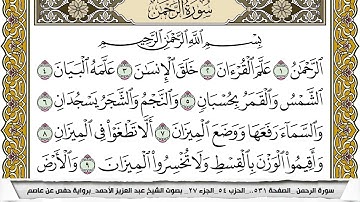 سُورَةُ الرَّحْمَٰن
بِسْمِ اللَّهِ الرَّحْمَٰنِ الرَّحِيمِ
الرَّحْمَٰنُ ١ عَلَّمَ الْقُرْءَانَ ٢ خَلَقَ الْإِنسَٰنَ ٣ عَلَّمَهُ الْبَيَانَ ٤
الشَّمْسُ وَالْقَمَرُ بِحُسْبَانٍ ٥ وَالنَّجْمُ وَالشَّجَرُ يَسْجُدَانِ ٦
وَالسَّمَاءَ رَفَعَهَا وَوَضَعَ الْمِيزَانَ ٧ أَلَّا تَطْغَوْا فِي الْمِيزَانِ ٨
وَأَقِيمُوا الْوَزْنَ بِالْقِسْطِ وَلَا تُخْسِرُوا الْمِيزَانَ ٩ وَالْأَرْضَ
سورة الرحمن ..الصفحة ٥٣١.. الحزب ٥٤ ..الجزء ٢٧.. بصوت الشيخ عبد العزيز الأحمد.. برواية حفص عن عاصم